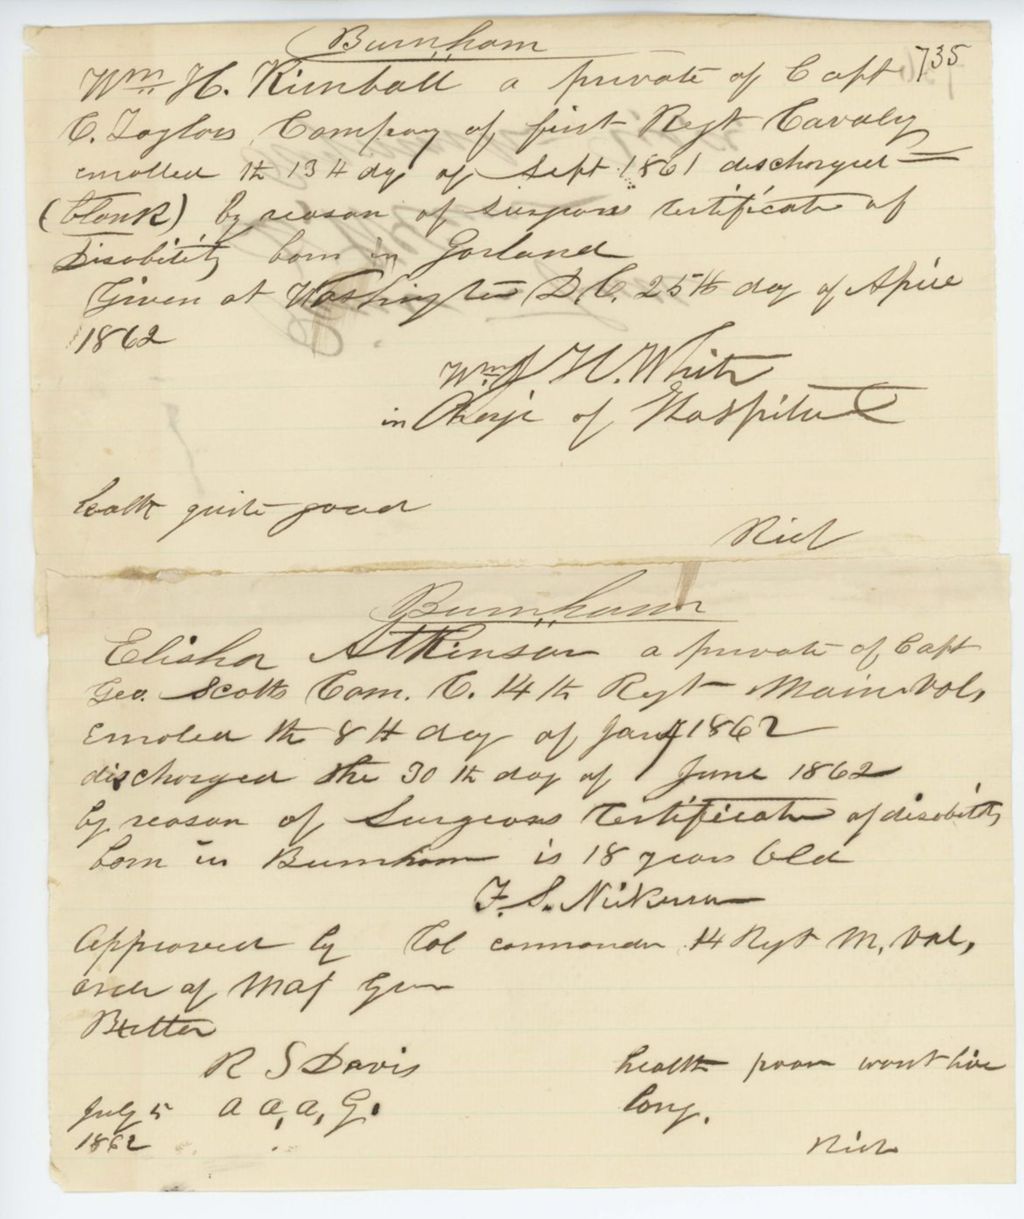 Burnham
735
Wm. H. Kimball a private of Capt
C. Taylors Company of first Regt Cavaly
enrolled th 13th dy of Sept 1861 discharged
(blank) by reason of surgeons certificate of
Disability born in Garland
Given at Washington D.C. 25th day of April
1862
Wm J H. White
in Charge of Hospital
health quite good
Rich
Burnham
Elisha Atkinson a private of Capt
Geo. Scotts Com. C. 14th Regt Main Vols,
enroled th 8th day of Jany 1862
discharged the 30th day of June 1862
by reason of Surgeons Certificate of disability
born in Burnham is 18 years Old
F. S. Nickerson
Approved by Col commander 14 Regt M, Vol,
order of Maj Gen
Butter
R S Davis health poor wont live
July 5 a a, a, G. long.
1862 Rich